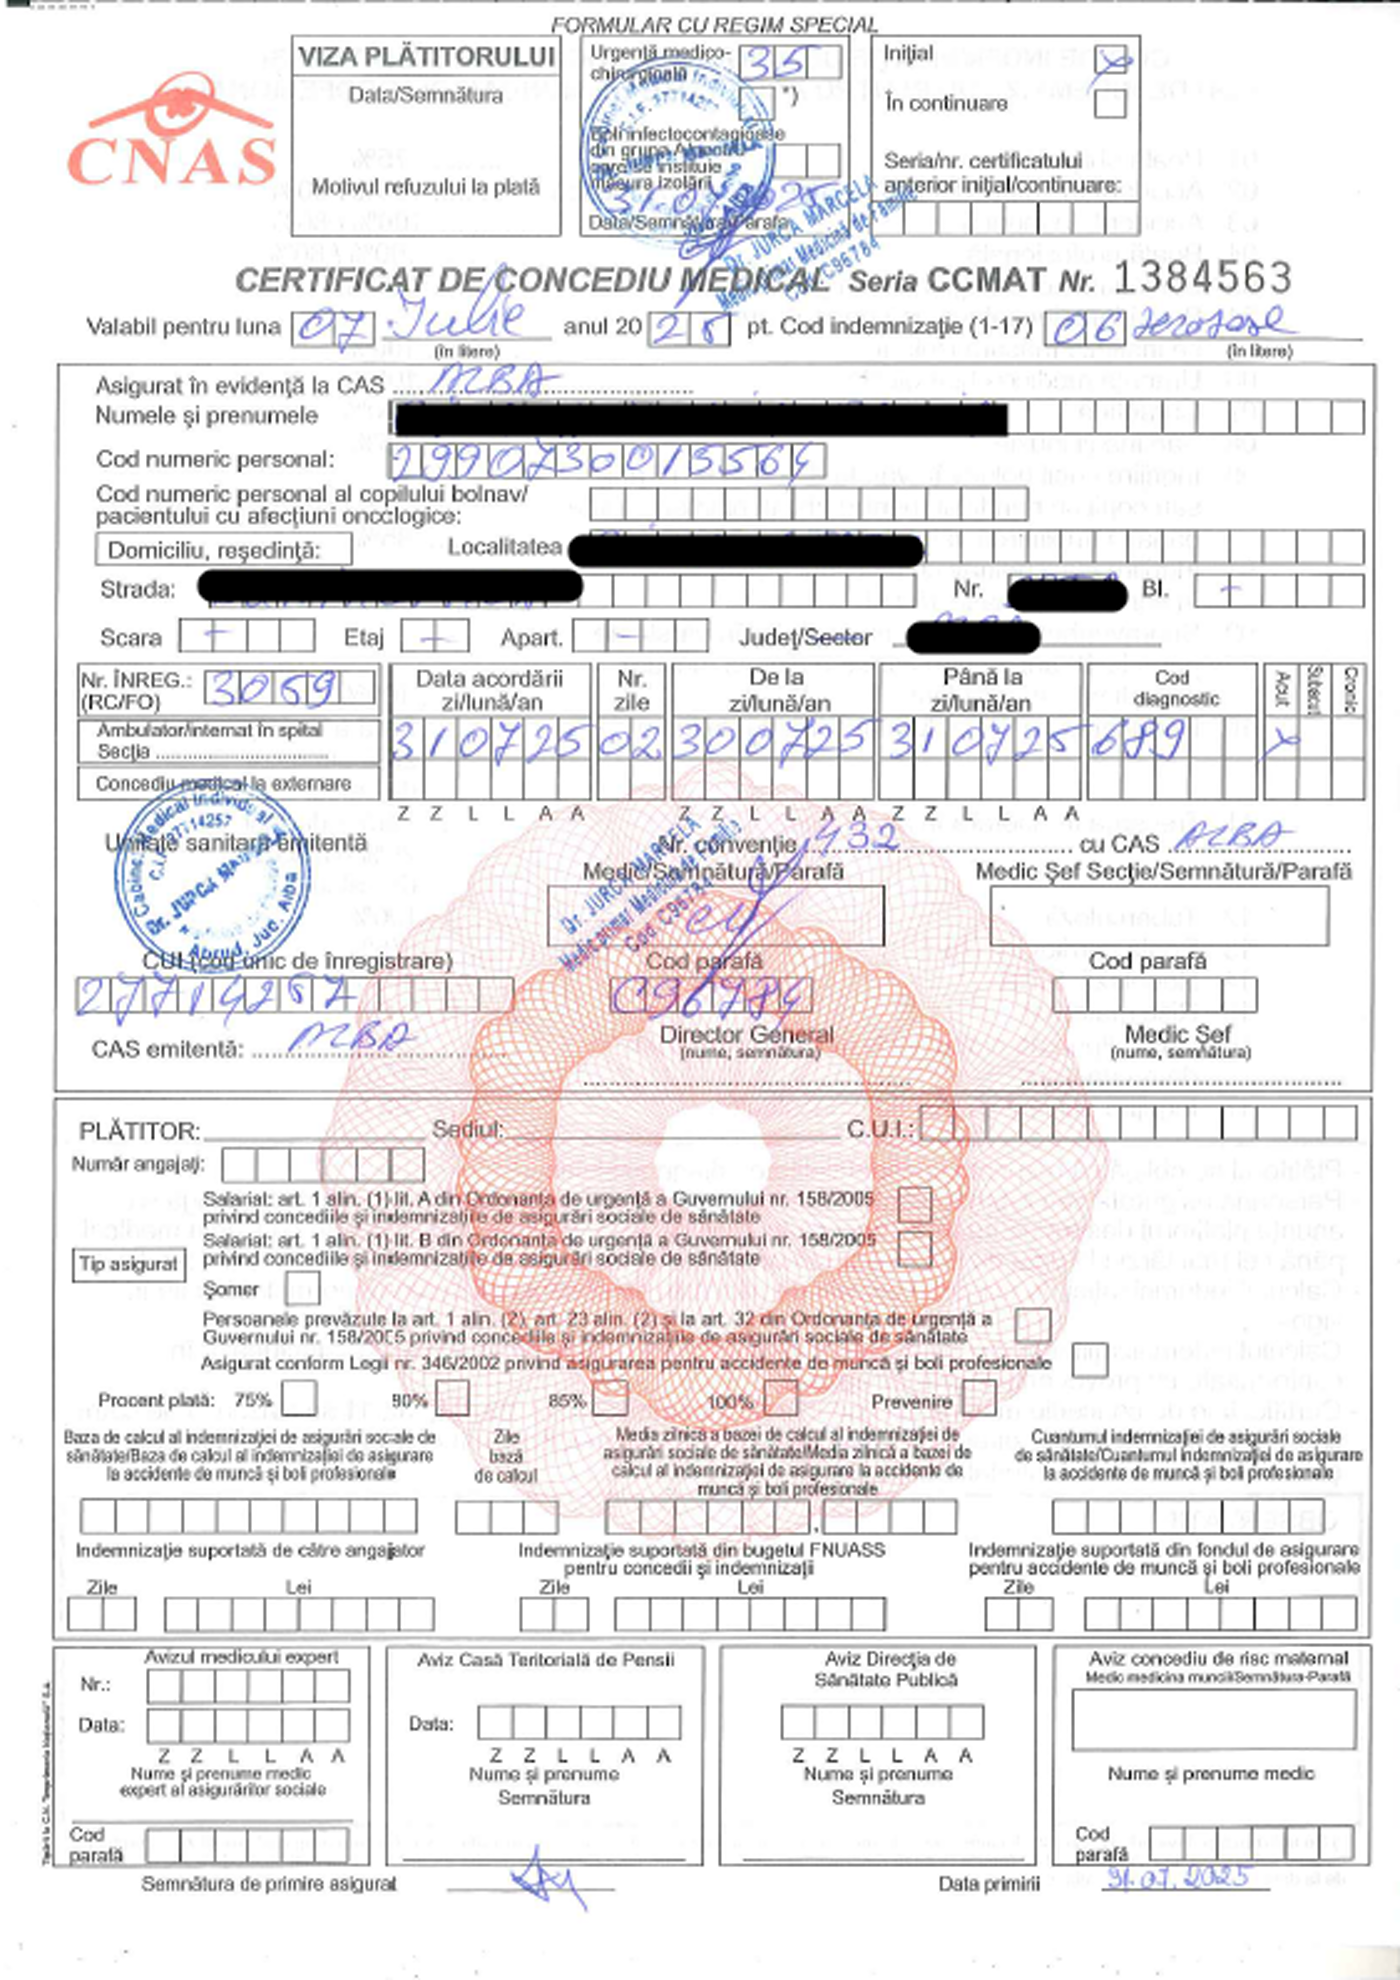 FORMULAR CU REGIM SPECIAL
CNAS
VIZA PLĂTITORULUI
Data/Semnătura
Motivul refuzului la plată
Urgență medico-
chirurgicală 35
*)
Boli infectocontagioase
din grupa A
care se instituie
măsura izolării
31.07.2025
Data/Semnătura/Parafa
Dr. JURCA MARCELA
Medic primar Medicină de Familie
Cod C96784
Inițial x
În continuare
Seria/nr. certificatului
anterior inițial/continuare:
CERTIFICAT DE CONCEDIU MEDICAL Seria CCMAT Nr. 1384563
Valabil pentru luna 07 Iulie anul 20 25 pt. Cod indemnizație (1-17) 06
(în litere) (în litere)
Asigurat în evidență la CAS ALBA
Numele și prenumele
Cod numeric personal: 2990730015564
Cod numeric personal al copilului bolnav/
pacientului cu afecțiuni oncologice:
Domiciliu, reședință: Localitatea
Strada: Nr. Bl. -
Scara - Etaj - Apart. - Județ/Sector
Nr. ÎNREG.:
(RC/FO) 3059
Data acordării
zi/lună/an
Nr.
zile
De la
zi/lună/an
Până la
zi/lună/an
Cod
diagnostic
Acut
Subacut
Cronic
Ambulator/internat în spital
Secția
310725 02 300725 310725 689 x
Concediu medical la externare
Z Z L L A A Z Z L L A A Z Z L L A A
Unitate sanitară emitentă
Cabinet Medical Individual
Dr. JURCA MARCELA
Abrud, Jud. Alba
Nr. convenție 432 cu CAS ALBA
Medic/Semnătură/Parafă
Medic Șef Secție/Semnătură/Parafă
Dr. JURCA MARCELA
Medic primar Medicină de Familie
Cod C96784
CUI (cod unic de înregistrare)
27714257
Cod parafă
C96784
Cod parafă
CAS emitentă: ALBA
Director General
(nume, semnătura)
Medic Șef
(nume, semnătura)
PLĂTITOR: Sediul: C.U.I.:
Număr angajați:
Tip asigurat
Salariat: art. 1 alin. (1) lit. A din Ordonanța de urgență a Guvernului nr. 158/2005
privind concediile și indemnizațiile de asigurări sociale de sănătate
Salariat: art. 1 alin. (1) lit. B din Ordonanța de urgență a Guvernului nr. 158/2005
privind concediile și indemnizațiile de asigurări sociale de sănătate
Șomer
Persoanele prevăzute la art. 1 alin. (2), art. 23 alin. (2) și la art. 32 din Ordonanța de urgență a
Guvernului nr. 158/2005 privind concediile și indemnizațiile de asigurări sociale de sănătate
Asigurat conform Legii nr. 346/2002 privind asigurarea pentru accidente de muncă și boli profesionale
Procent plată: 75% 80% 85% 100% Prevenire
Baza de calcul al indemnizației de asigurări sociale de
sănătate/Baza de calcul al indemnizației de asigurare
la accidente de muncă și boli profesionale
Zile
bază
de calcul
Media zilnică a bazei de calcul al indemnizației de
asigurări sociale de sănătate/Media zilnică a bazei de
calcul al indemnizației de asigurare la accidente de
muncă și boli profesionale
Cuantumul indemnizației de asigurări sociale
de sănătate/Cuantumul indemnizației de asigurare
la accidente de muncă și boli profesionale
Indemnizație suportată de către angajator
Zile Lei
Indemnizație suportată din bugetul FNUASS
pentru concedii și indemnizații
Zile Lei
Indemnizație suportată din fondul de asigurare
pentru accidente de muncă și boli profesionale
Zile Lei
Avizul medicului expert
Nr.:
Data:
Z Z L L A A
Nume și prenume medic
expert al asigurărilor sociale
Cod
parafă
Aviz Casă Teritorială de Pensii
Data:
Z Z L L A A
Nume și prenume
Semnătura
Aviz Direcția de
Sănătate Publică
Z Z L L A A
Nume și prenume
Semnătura
Aviz concediu de risc maternal
Medic medicina muncii/Semnătura-Parafă
Nume și prenume medic
Cod
parafă
Semnătura de primire asigurat
Data primirii 31.07.2025